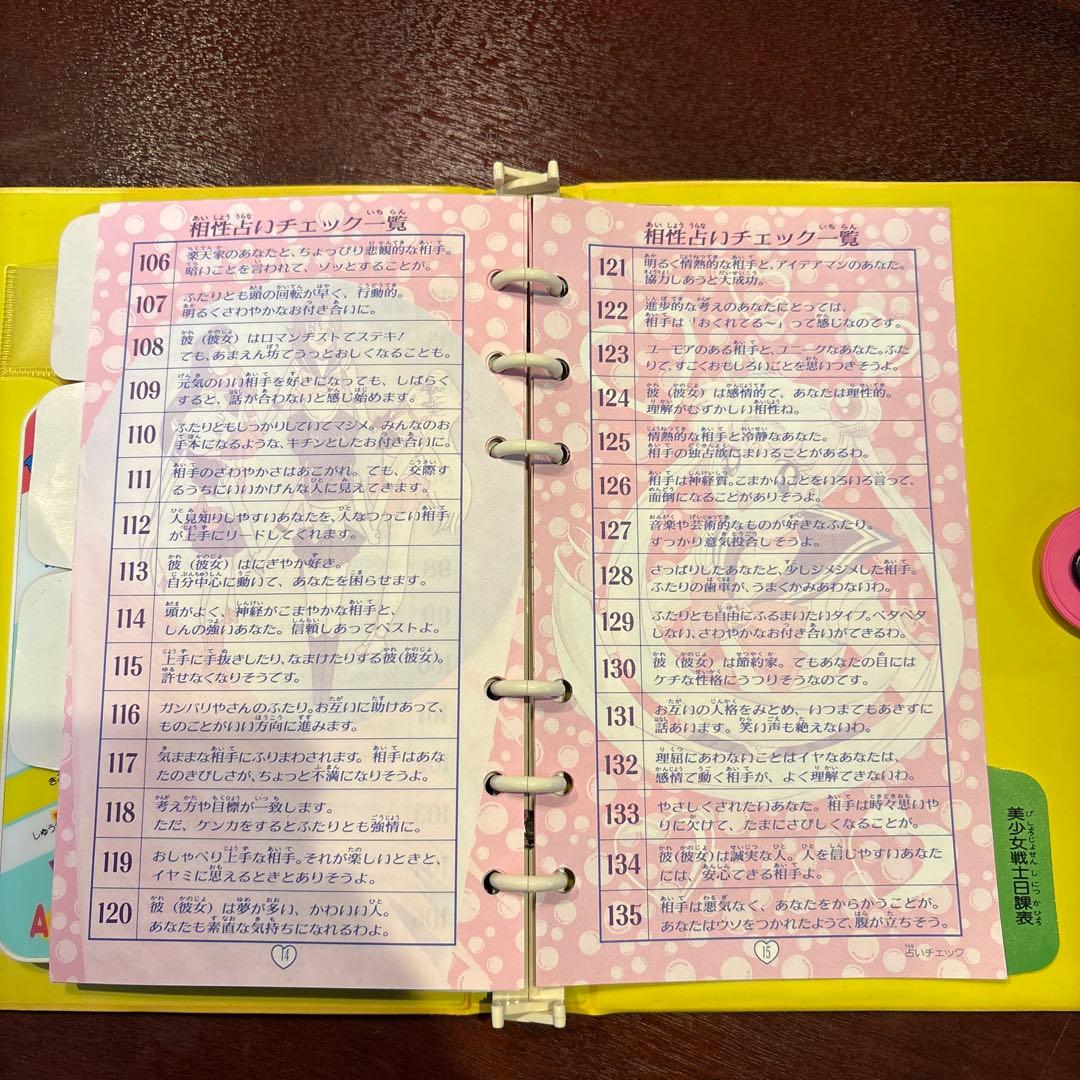 相性占いチェック一覧
106 楽天家のあなたと、ちょっぴり悲観的な相手。
暗いことを言われて、ゾッとすることが。
107 ふたりとも頭の回転が早く、行動的。
明るくさわやかなお付き合いに。
108 彼（彼女）はロマンチストでステキ！
でも、あまえん坊でうっとおしくなることも。
109 元気のいい相手を好きになっても、しばらく
すると、話が合わないと感じ始めます。
110 ふたりともしっかりしていてマジメ。みんなのお
手本になるような、キチンとしたお付き合いに。
111 相手のさわやかさはあこがれ。でも、交際す
るうちにいいかげんな人に見えてきます。
112 人見知りしやすいあなたを、人なつっこい相手
が上手にリードしてくれます。
113 彼（彼女）はにぎやか好き。
自分中心に動いて、あなたを困らせます。
114 頭がよく、神経がこまやかな相手と、
しんの強いあなた。信頼しあってベストよ。
115 上手に手抜きしたり、なまけたりする彼（彼女）。
許せなくなりそうです。
116 ガンバリやさんのふたり。お互いに助けあって、
ものごとがいい方向に進みます。
117 気ままな相手にふりまわされます。相手はあな
たのきびしさが、ちょっと不満になりそうよ。
118 考え方や目標が一致します。
ただ、ケンカをするとふたりとも強情に。
119 おしゃべり上手な相手。それが楽しいときと、
イヤミに思えるときとありそうよ。
120 彼（彼女）は夢が多い、かわいい人。
あなたも素直な気持ちになれるわよ。
14
相性占いチェック一覧
121 明るく情熱的な相手と、アイデアマンのあなた。
協力しあうと大成功。
122 進歩的な考えのあなたにとっては、
相手は「おくれてる〜」って感じなのです。
123 ユーモアのある相手と、ユニークなあなた。ふた
りで、すごくおもしろいことを思いつきそうよ。
124 彼（彼女）は感情的で、あなたは理性的。
理解がむずかしい相性ね。
125 情熱的な相手と冷静なあなた。
相手の独占欲にまいることがあるわ。
126 相手は神経質。こまかいことをいろいろ言って、
面倒になることがありそうよ。
127 音楽や芸術的なものが好きなふたり。
すっかり意気投合しそうよ。
128 さっぱりしたあなたと、少しジメジメした相手。
ふたりの歯車が、うまくかみあわないわ。
129 ふたりとも自由にふるまいたいタイプ。ベタベタ
しない、さわやかなお付き合いができるわ。
130 彼（彼女）は節約家。でもあなたの目には
ケチな性格にうつりそうなのです。
131 お互いの人格をみとめ、いつまでもあきずに
話あいます。笑い声も絶えないわ。
132 理屈にあわないことはイヤなあなたは、
感情で動く相手が、よく理解できないわ。
133 やさしくされたいあなた。相手は時々思いや
りに欠けて、たまにさびしくなることが。
134 彼（彼女）は誠実な人。人を信じやすいあなた
には、安心できる相手よ。
135 相手は悪気なく、あなたをからかうことが。
あなたはウソをつかれたようで、腹が立ちそう。
15
占いチェック
美少女戦士日課表